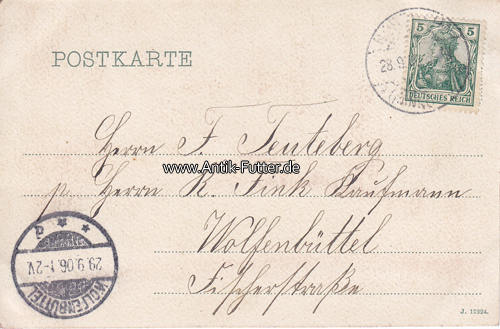 POSTKARTE
5 5
DEUTSCHES REICH
28.9.
Herrn F. Teuteberg
www.Antik-Futter.de
p. Herrn K. Fink Kaufmann
Wolfenbüttel
Fischerstraße
WOLFENBÜTTEL
29.9.06.1-2V.
J. 12924.